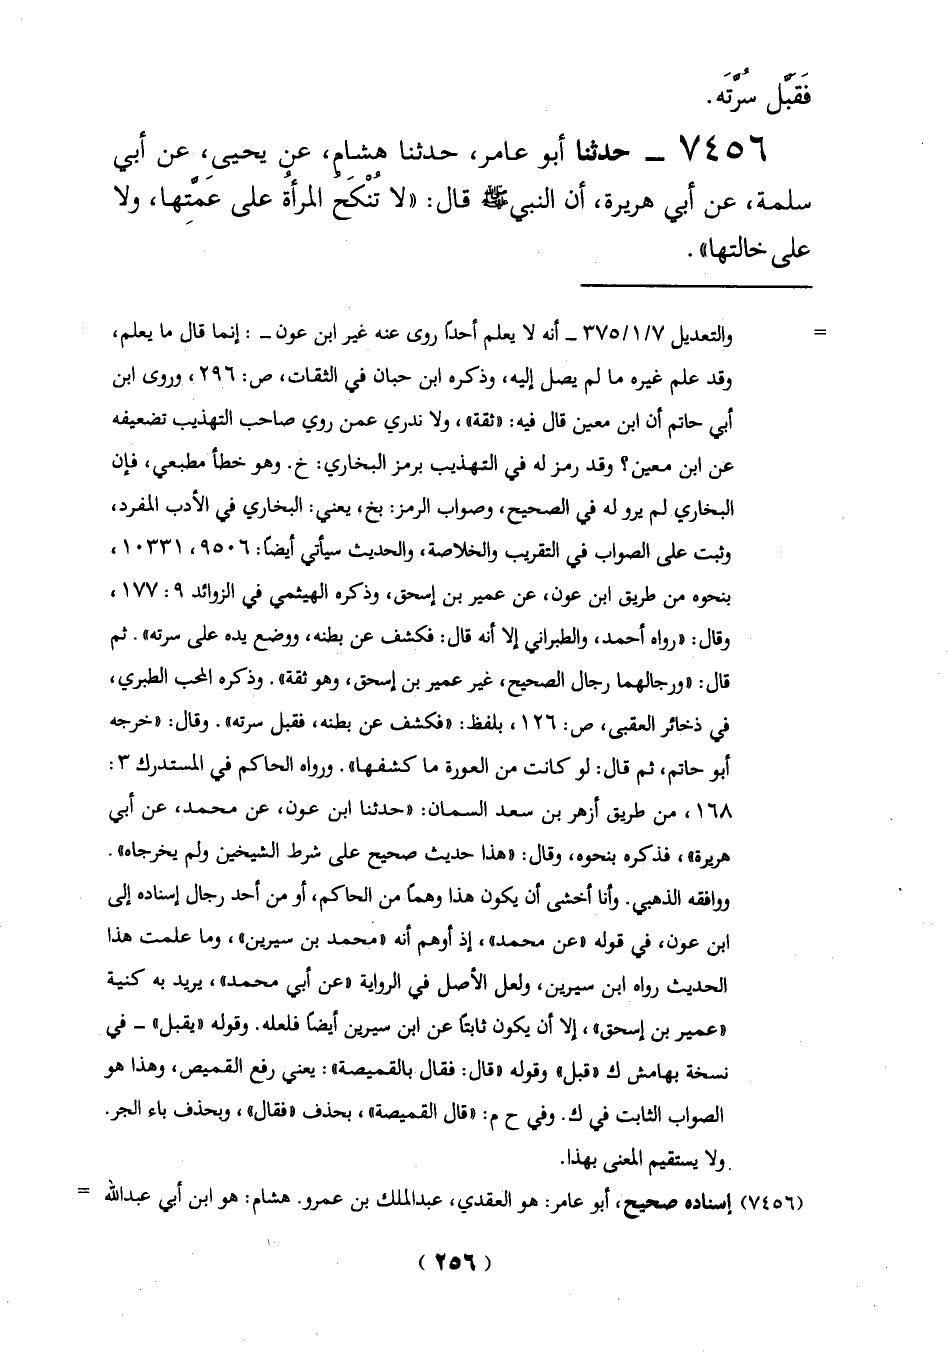 فَقَبَّل سُرَّتَه.
٧٤٥٦ ــ حدثنا أبو عامر، حدثنا هشام، عن يحيى، عن أبي
سلمة، عن أبي هريرة، أن النبي ﷺ قال: «لا تُنْكَحُ المرأةُ على عمَّتِها، ولا
على خالتها».
= والتعديل ٣٧٥/١/٧ ــ أنه لا يعلم أحدًا روى عنه غير ابن عون ــ : إنما قال ما يعلم،
وقد علم غيره ما لم يصل إليه، وذكره ابن حبان في الثقات، ص: ٢٩٦، وروى ابن
أبي حاتم أن ابن معين قال فيه: «ثقة»، ولا ندري عمن روي صاحب التهذيب تضعيفه
عن ابن معين؟ وقد رمز له في التهذيب برمز البخاري: خ. وهو خطأ مطبعي، فإن
البخاري لم يرو له في الصحيح، وصواب الرمز: بخ، يعني: البخاري في الأدب المفرد،
وثبت على الصواب في التقريب والخلاصة، والحديث سيأتي أيضًا: ٩٥٠٦، ١٠٣٣١،
بنحوه من طريق ابن عون، عن عمير بن إسحق، وذكره الهيثمي في الزوائد ٩: ١٧٧،
وقال: «رواه أحمد، والطبراني إلا أنه قال: فكشف عن بطنه، ووضع يده على سرته». ثم
قال: «ورجالهما رجال الصحيح، غير عمير بن إسحق، وهو ثقة». وذكره المحب الطبري،
في ذخائر العقبى، ص: ١٢٦، بلفظ: «فكشف عن بطنه، فقبل سرته». وقال: «خرجه
أبو حاتم، ثم قال: لو كانت من العورة ما كشفها». ورواه الحاكم في المستدرك ٣:
١٦٨، من طريق أزهر بن سعد السمان: «حدثنا ابن عون، عن محمد، عن أبي
هريرة»، فذكره بنحوه، وقال: «هذا حديث صحيح على شرط الشيخين ولم يخرجاه».
ووافقه الذهبي. وأنا أخشى أن يكون هذا وهمًا من الحاكم، أو من أحد رجال إسناده إلى
ابن عون، في قوله «عن محمد»، إذ أوهم أنه «محمد بن سيرين»، وما علمت هذا
الحديث رواه ابن سيرين، ولعل الأصل في الرواية «عن أبي محمد»، يريد به كنية
«عمير بن إسحق»، إلا أن يكون ثابتًا عن ابن سيرين أيضًا فلعله. وقوله «يقبل» ــ في
نسخة بهامش ك «قبل» وقوله «قال: فقال بالقميصة»: يعني رفع القميص، وهذا هو
الصواب الثابت في ك. وفي ح م: «قال القميصة»، بحذف «فقال»، وبحذف باء الجر.
ولا يستقيم المعنى بهذا.
(٧٤٥٦) إسناده صحيح، أبو عامر: هو العقدي، عبدالملك بن عمرو. هشام: هو ابن أبي عبدالله =
(٢٥٦)